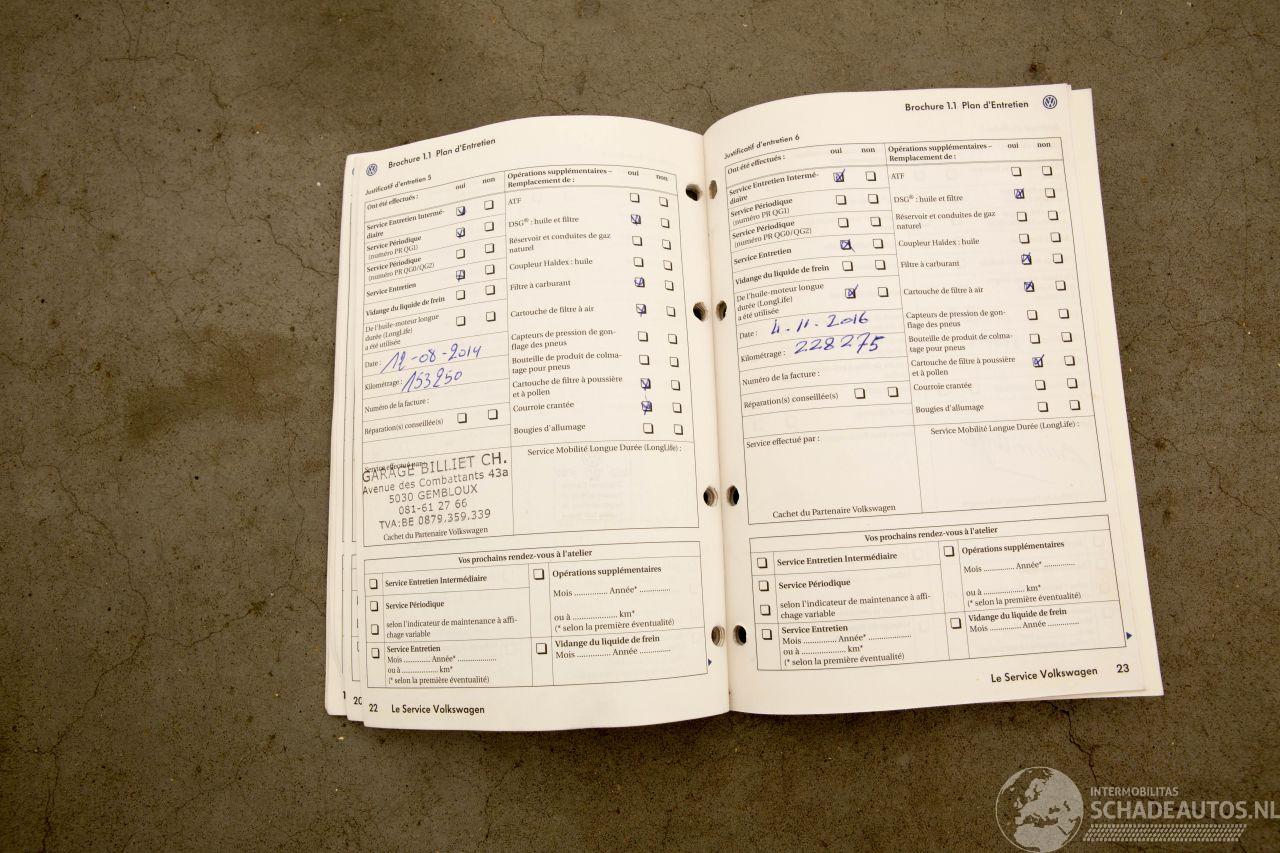 Brochure 1.1 Plan d'Entretien
Justificatif d'entretien 5
Ont été effectués : oui non
Service Entretien Intermé-
diaire
Service Périodique
(numéro PR QG1)
Service Périodique
(numéro PR QG0/QG2)
Service Entretien
Vidange du liquide de frein
De l'huile-moteur longue
durée (LongLife)
a été utilisée
Date : 12-08-2014
Kilométrage : 153250
Numéro de la facture :
Réparation(s) conseillée(s)
Service effectué par :
GARAGE BILLIET CH.
Avenue des Combattants 43a
5030 GEMBLOUX
081-61 27 66
TVA:BE 0879.359.339
Cachet du Partenaire Volkswagen
Opérations supplémentaires –
Remplacement de : oui non
ATF
DSG® : huile et filtre
Réservoir et conduites de gaz
naturel
Coupleur Haldex : huile
Filtre à carburant
Cartouche de filtre à air
Capteurs de pression de gon-
flage des pneus
Bouteille de produit de colma-
tage pour pneus
Cartouche de filtre à poussière
et à pollen
Courroie crantée
Bougies d'allumage
Service Mobilité Longue Durée (LongLife) :
Vos prochains rendez-vous à l'atelier
Service Entretien Intermédiaire
Service Périodique
selon l'indicateur de maintenance à affi-
chage variable
Service Entretien
Mois .............. Année* ..................
ou à .................... km*
(* selon la première éventualité)
Opérations supplémentaires
Mois .............. Année* ..............
ou à .................... km*
(* selon la première éventualité)
Vidange du liquide de frein
Mois .............. Année ..............
20
22 Le Service Volkswagen
Brochure 1.1 Plan d'Entretien
Justificatif d'entretien 6
Ont été effectués : oui non
Service Entretien Intermé-
diaire
Service Périodique
(numéro PR QG1)
Service Périodique
(numéro PR QG0/QG2)
Service Entretien
Vidange du liquide de frein
De l'huile-moteur longue
durée (LongLife)
a été utilisée
Date : 4-11-2016
Kilométrage : 228275
Numéro de la facture :
Réparation(s) conseillée(s)
Service effectué par :
Cachet du Partenaire Volkswagen
Opérations supplémentaires –
Remplacement de : oui non
ATF
DSG® : huile et filtre
Réservoir et conduites de gaz
naturel
Coupleur Haldex : huile
Filtre à carburant
Cartouche de filtre à air
Capteurs de pression de gon-
flage des pneus
Bouteille de produit de colma-
tage pour pneus
Cartouche de filtre à poussière
et à pollen
Courroie crantée
Bougies d'allumage
Service Mobilité Longue Durée (LongLife) :
Vos prochains rendez-vous à l'atelier
Service Entretien Intermédiaire
Service Périodique
selon l'indicateur de maintenance à affi-
chage variable
Service Entretien
Mois .............. Année* ..................
ou à .................... km*
(* selon la première éventualité)
Opérations supplémentaires
Mois .............. Année* ..............
ou à .................... km*
(* selon la première éventualité)
Vidange du liquide de frein
Mois .............. Année ..............
Le Service Volkswagen 23
INTERMOBILITAS
SCHADEAUTOS.NL